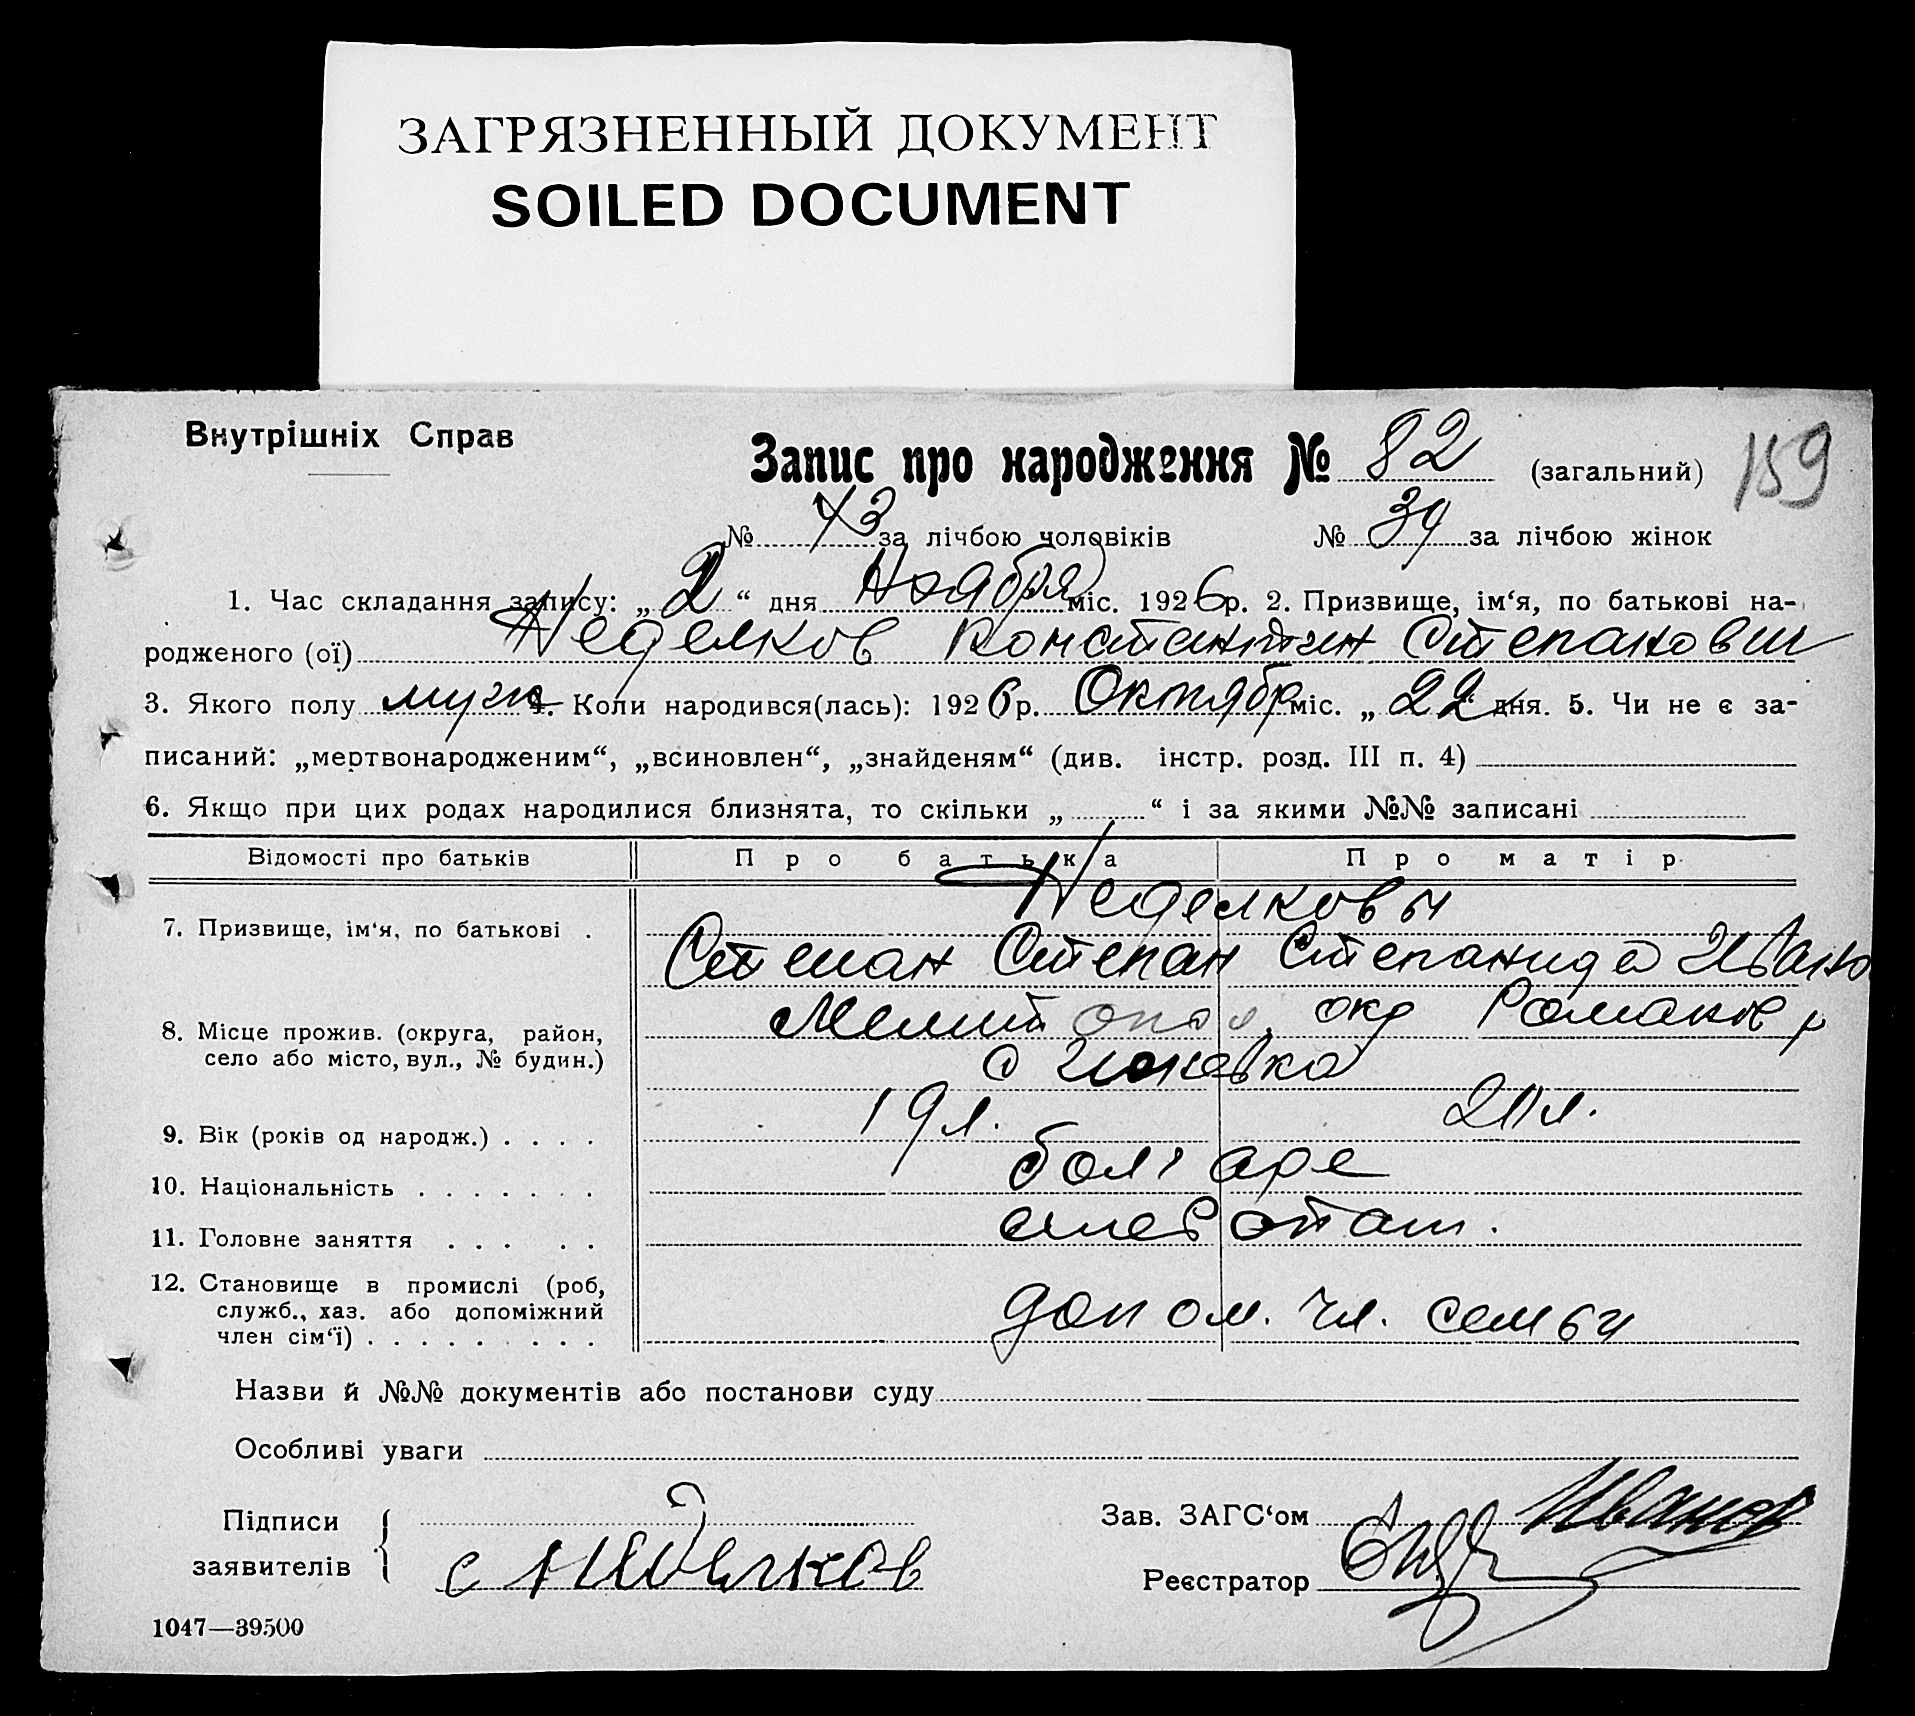 ЗАГРЯЗНЕННЫЙ ДОКУМЕНТ
SOILED DOCUMENT
Внутрішніх Справ
Запис про народження № 82 (загальний) 159
№ 43 за лічбою чоловіків № 39 за лічбою жінок
1. Час складання запису: „2“ дня Ноября міс. 1926 р. 2. Призвище, ім‘я, по батькові на-
родженого (ої) Неделков Константин Степанович
3. Якого полу муж 4. Коли народився(лась): 1926 р. Октябр міс. „22“ дня. 5. Чи не є за-
писаний: „мертвонародженим“, „всиновлен“, „знайденям“ (див. інстр. розд. III п. 4)
6. Якщо при цих родах народилися близнята, то скільки „ “ і за якими №№ записані
Відомості про батьків Про батька Про матір
Неделковы
7. Призвище, ім‘я, по батькові .
Степан Степан Степанида Ивано
8. Місце прожив. (округа, район, село або місто, вул., № будин.)
Мелитопол. окр Романов р
9. Вік (років од народж.) . . . . 19 л. 20 л.
10. Національність . . . . . . . болгаре
11. Головне заняття . . . . .
12. Становище в промислі (роб, служб., хаз. або допоміжний член сім‘ї) . . . . . . . . .
допом. чл. семьи
Назви й №№ документів або постанови суду
Особливі уваги
Підписи заявителів { с Неделков
Зав. ЗАГС‘ом Иванов
Реєстратор
1047—39500